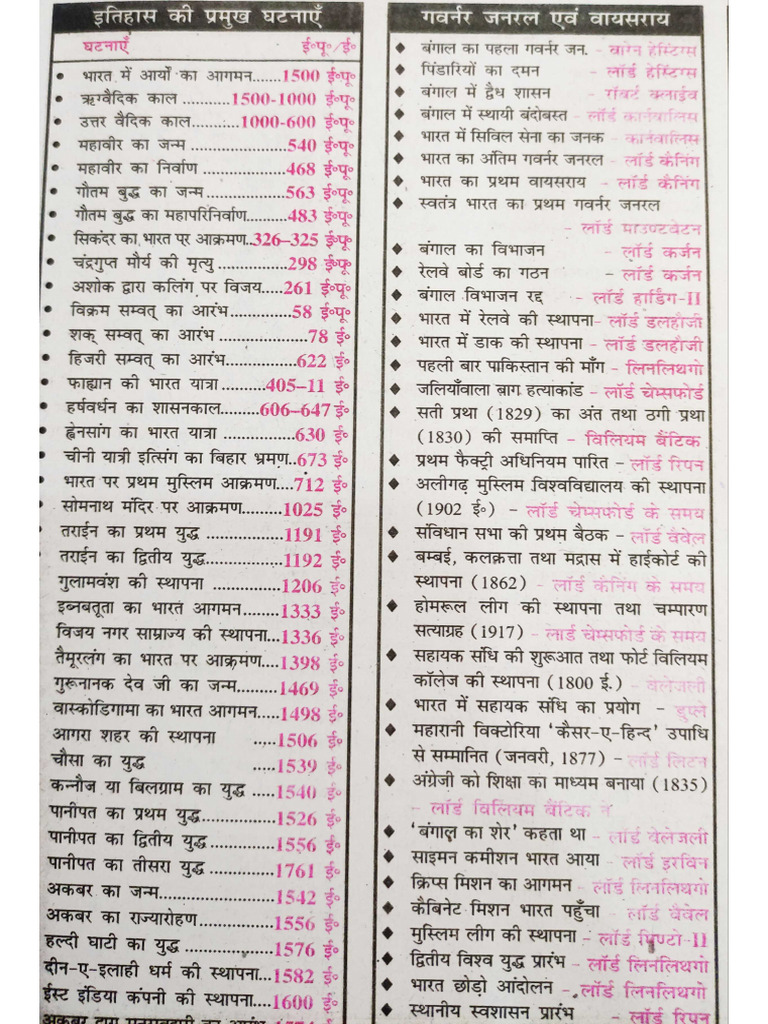 इतिहास की प्रमुख घटनाएँ
घटनाएँ ई॰पू॰/ई॰
भारत में आर्यों का आगमन.......1500 ई॰पू॰
ऋग्वैदिक काल ...........1500-1000 ई॰पू॰
उत्तर वैदिक काल...........1000-600 ई॰पू॰
महावीर का जन्म ....................540 ई॰पू॰
महावीर का निर्वाण .................468 ई॰पू॰
गौतम बुद्ध का जन्म ................563 ई॰पू॰
गौतम बुद्ध का महापरिनिर्वाण........483 ई॰पू॰
सिकंदर का भारत पर आक्रमण..326–325 ई॰पू॰
चंद्रगुप्त मौर्य की मृत्यु .............298 ई॰पू॰
अशोक द्वारा कलिंग पर विजय.....261 ई॰पू॰
विक्रम सम्वत् का आरंभ............58 ई॰पू॰
शक् सम्वत् का आरंभ .................78 ई॰
हिजरी सम्वत् का आरंभ..............622 ई॰
फाह्यान की भारत यात्रा .........405–11 ई॰
हर्षवर्धन का शासनकाल.........606–647 ई॰
ह्वेनसांग का भारत यात्रा ..............630 ई॰
चीनी यात्री इत्सिंग का बिहार भ्रमण..673 ई॰
भारत पर प्रथम मुस्लिम आक्रमण....712 ई॰
सोमनाथ मंदिर पर आक्रमण........1025 ई॰
तराईन का प्रथम युद्ध ................1191 ई॰
तराईन का द्वितीय युद्ध...............1192 ई॰
गुलामवंश की स्थापना ...............1206 ई॰
इब्नबतूता का भारत आगमन........1333 ई॰
विजय नगर साम्राज्य की स्थापना...1336 ई॰
तैमूरलंग का भारत पर आक्रमण....1398 ई॰
गुरूनानक देव जी का जन्म........1469 ई॰
वास्कोडिगामा का भारत आगमन....1498 ई॰
आगरा शहर की स्थापना .....1506 ई॰
चौसा का युद्ध .....1539 ई॰
कन्नौज या बिलग्राम का युद्ध .....1540 ई॰
पानीपत का प्रथम युद्ध..............1526 ई॰
पानीपत का द्वितीय युद्ध............1556 ई॰
पानीपत का तीसरा युद्ध.............1761 ई॰
अकबर का जन्म.....................1542 ई॰
अकबर का राज्यारोहण..............1556 ई॰
हल्दी घाटी का युद्ध ................1576 ई॰
दीन-ए-इलाही धर्म की स्थापना...1582 ई॰
ईस्ट इंडिया कंपनी की स्थापना...1600 ई॰
गवर्नर जनरल एवं वायसराय
बंगाल का पहला गवर्नर जन. - वारेन हेस्टिंग्स
पिंडारियों का दमन - लॉर्ड हेस्टिंग्स
बंगाल में द्वैध शासन - रॉबर्ट क्लाईव
बंगाल में स्थायी बंदोबस्त - लॉर्ड कार्नवालिस
भारत में सिविल सेना का जनक - कार्नवालिस
भारत का अंतिम गवर्नर जनरल - लॉर्ड कैनिंग
भारत का प्रथम वायसराय - लॉर्ड कैनिंग
स्वतंत्र भारत का प्रथम गवर्नर जनरल
- लॉर्ड माउण्टबेटन
बंगाल का विभाजन - लॉर्ड कर्जन
रेलवे बोर्ड का गठन - लॉर्ड कर्जन
बंगाल विभाजन रद्द - लॉर्ड हार्डिंग-II
भारत में रेलवे की स्थापना- लॉर्ड डलहौजी
भारत में डाक की स्थापना - लॉर्ड डलहौजी
पहली बार पाकिस्तान की माँग - लिनलिथगो
जलियाँवाला बाग हत्याकांड - लॉर्ड चेम्सफोर्ड
सती प्रथा (1829) का अंत तथा ठगी प्रथा
(1830) की समाप्ति - विलियम बैंटिक
प्रथम फैक्ट्री अधिनियम पारित - लॉर्ड रिपन
अलीगढ़ मुस्लिम विश्वविद्यालय की स्थापना
(1902 ई०) - लॉर्ड चेम्सफोर्ड के समय
संविधान सभा की प्रथम बैठक - लॉर्ड वैवेल
बम्बई, कलकत्ता तथा मद्रास में हाईकोर्ट की
स्थापना (1862) - लॉर्ड कैनिंग के समय
होमरूल लीग की स्थापना तथा चम्पारण
सत्याग्रह (1917) - लार्ड चेम्सफोर्ड के समय
सहायक संधि की शुरूआत तथा फोर्ट विलियम
कॉलेज की स्थापना (1800 ई.) - वेलेजली
भारत में सहायक संधि का प्रयोग - डुप्ले
महारानी विक्टोरिया ‘कैसर-ए-हिन्द’ उपाधि
से सम्मानित (जनवरी, 1877) - लॉर्ड लिटन
अंग्रेजी को शिक्षा का माध्यम बनाया (1835)
- लॉर्ड विलियम बैंटिक ने
‘बंगाल का शेर’ कहता था - लॉर्ड वेलेजली
साइमन कमीशन भारत आया - लॉर्ड इरविन
क्रिप्स मिशन का आगमन - लॉर्ड लिनलिथगो
कैबिनेट मिशन भारत पहुँचा - लॉर्ड वैवेल
मुस्लिम लीग की स्थापना - लॉर्ड मिण्टो-II
द्वितीय विश्व युद्ध प्रारंभ - लॉर्ड लिनलिथगो
भारत छोड़ो आंदोलन - लॉर्ड लिनलिथगो
स्थानीय स्वशासन प्रारंभ - लॉर्ड रिपन